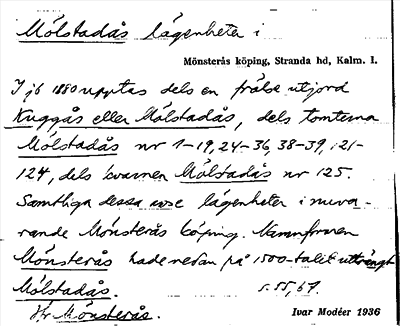 Mölstadås lägenheter i
Mönsterås köping, Stranda hd, Kalm. l.
I jb 1880 upptas dels en frälse utjord
Kuggås eller Mölstadås, dels tomterna
Mölstadås nr 1-19, 24-36, 38-39, 121-
124, dels kvarnen Mölstadås nr 125.
Samtliga dessa lägenheter i nuva-
rande Mönsterås köping. Namnformen
Mönsterås hade redan på 1500-talet utträngt
Mölstadås. s. 55, 67.
Hr Mönsterås. Ivar Modéer 1936